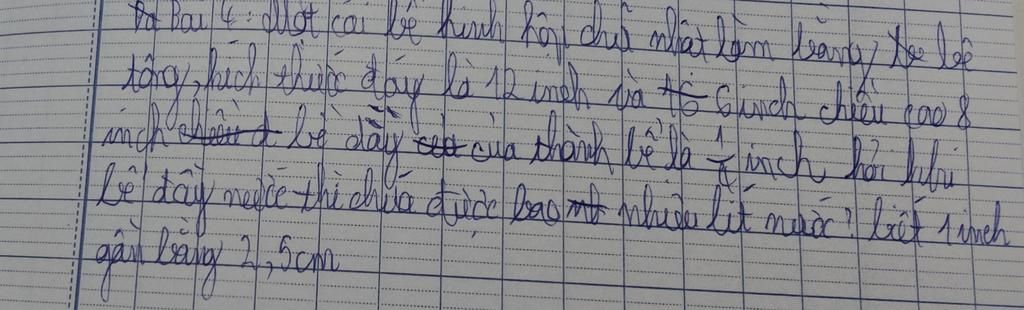 Bài 4: Một cái bể hình hộp chữ nhật làm bằng bê
tông, kích thước đáy là 12 inch và 6 inch chiều cao 8
inch bề dầy của thành bể là inch hỏi khi
bể đầy nước thì chứa được bao nhiêu lít nước? biết 1 inch
gần bằng 2,5cm